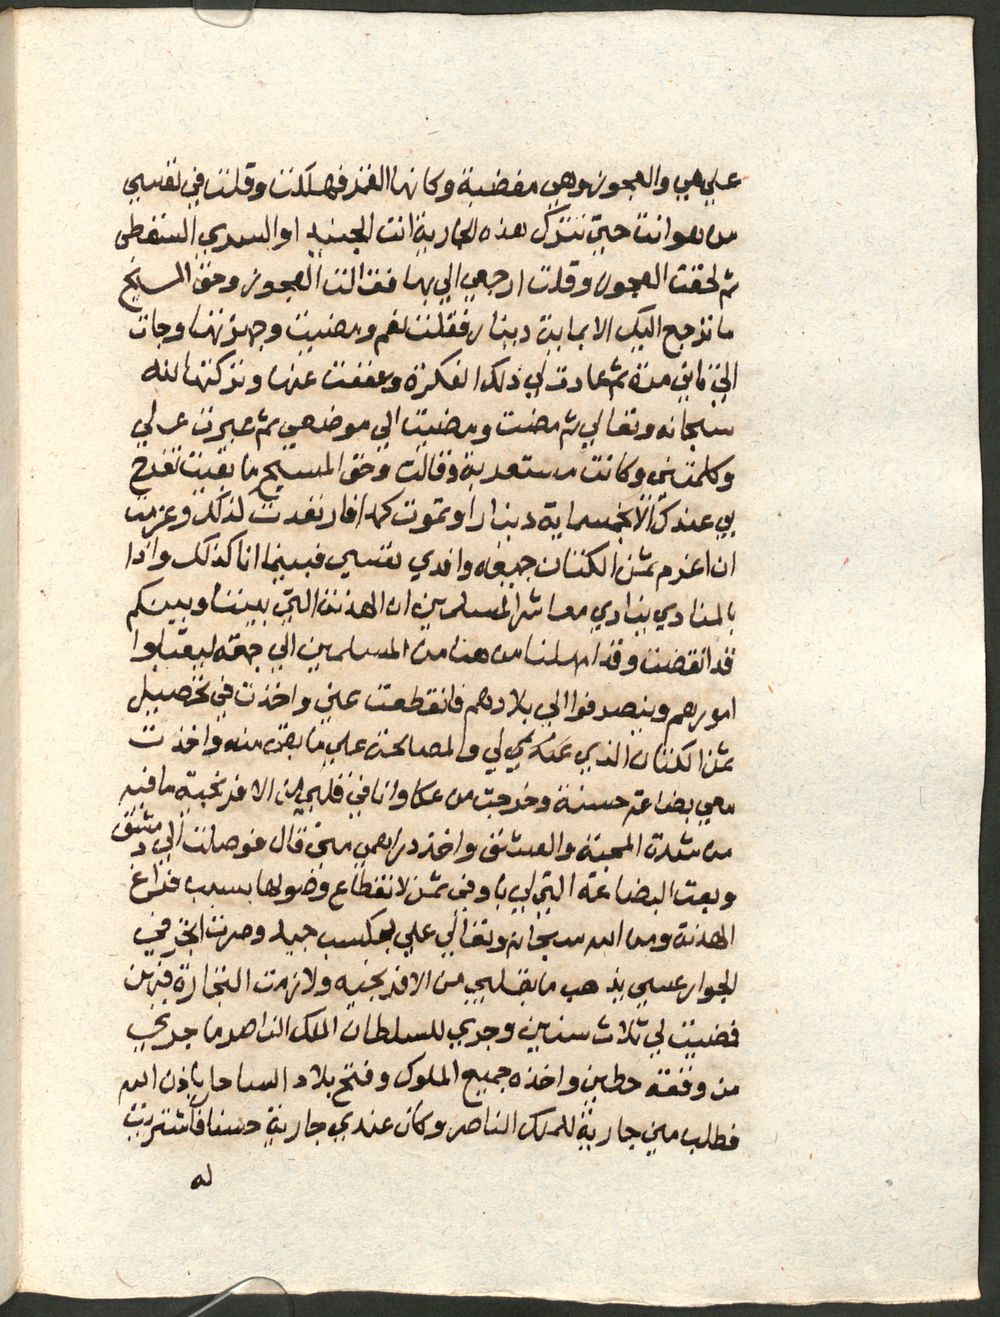 علي هي والعجوز وهي مغضبة وكانها القمر فهلكت وقلت في نفسي
من هو انت حتي تترك هذه الجارية انت الجنيد او السري السقطي
ثم لحقت العجوز وقلت ارجعي الي بها فقالت العجوز وحق المسيح
ما ترجع اليك الا بماية دينار فقلت نعم ومضيت وجهزتها وجات
الي ثاني مرة ثم عادت لي ذلك الفكرة وعففت عنها وتركتها لله
سبحانه وتعالي ثم مضت ومضيت الي موضعي ثم عبرت علي
وكلمتني وكانت مستعربة وقالت وحق المسيح ما بقيت تفرح
بي عندك الا بخمسماية دينار او تموت كمدا فارتعدت لذلك وعزمت
ان اغرم ثمن الكتان جميعه وافدي نفسي فبينما انا كذلك واذا
بالمنادي ينادي معاشر المسلمين ان الهدنة التي بيننا وبينكم
قد انقضت وقد امهلنا من هنا من المسلمين الي جمعه ليقضوا
امورهم وينصرفوا الي بلادهم فانقطعت عني واخذت في تحصيل
ثمن الكتان الذي لي والمصالحة علي ما بقي منه واخذت
معي بضاعة حسنة وخرجت من عكا وانا في قلبي من الافرنجية ما فيه
من شدة المحبة والعشق واخذ دراهمي مني قال فوصلت الي دمشق
وبعت البضاعة التي لي باوفي ثمن لانقطاع وصولها بسبب فراغ
الهدنة ومن الله سبحانه وتعالي علي بكسب جيد وصرت اتجر في
الجوار عسي يذهب ما بقلبي من الافرنجيه ولازمت التجارة فيهن
فمضيت لي ثلاث سنين وجري للسلطان الملك الناصر ما جري
من وقعة حطين واخذه جميع الملوك وفتح بلاد الساحل باذن الله
فطلب مني جارية للملك الناصر وكان عندي جارية حسنا فاشتريت
له